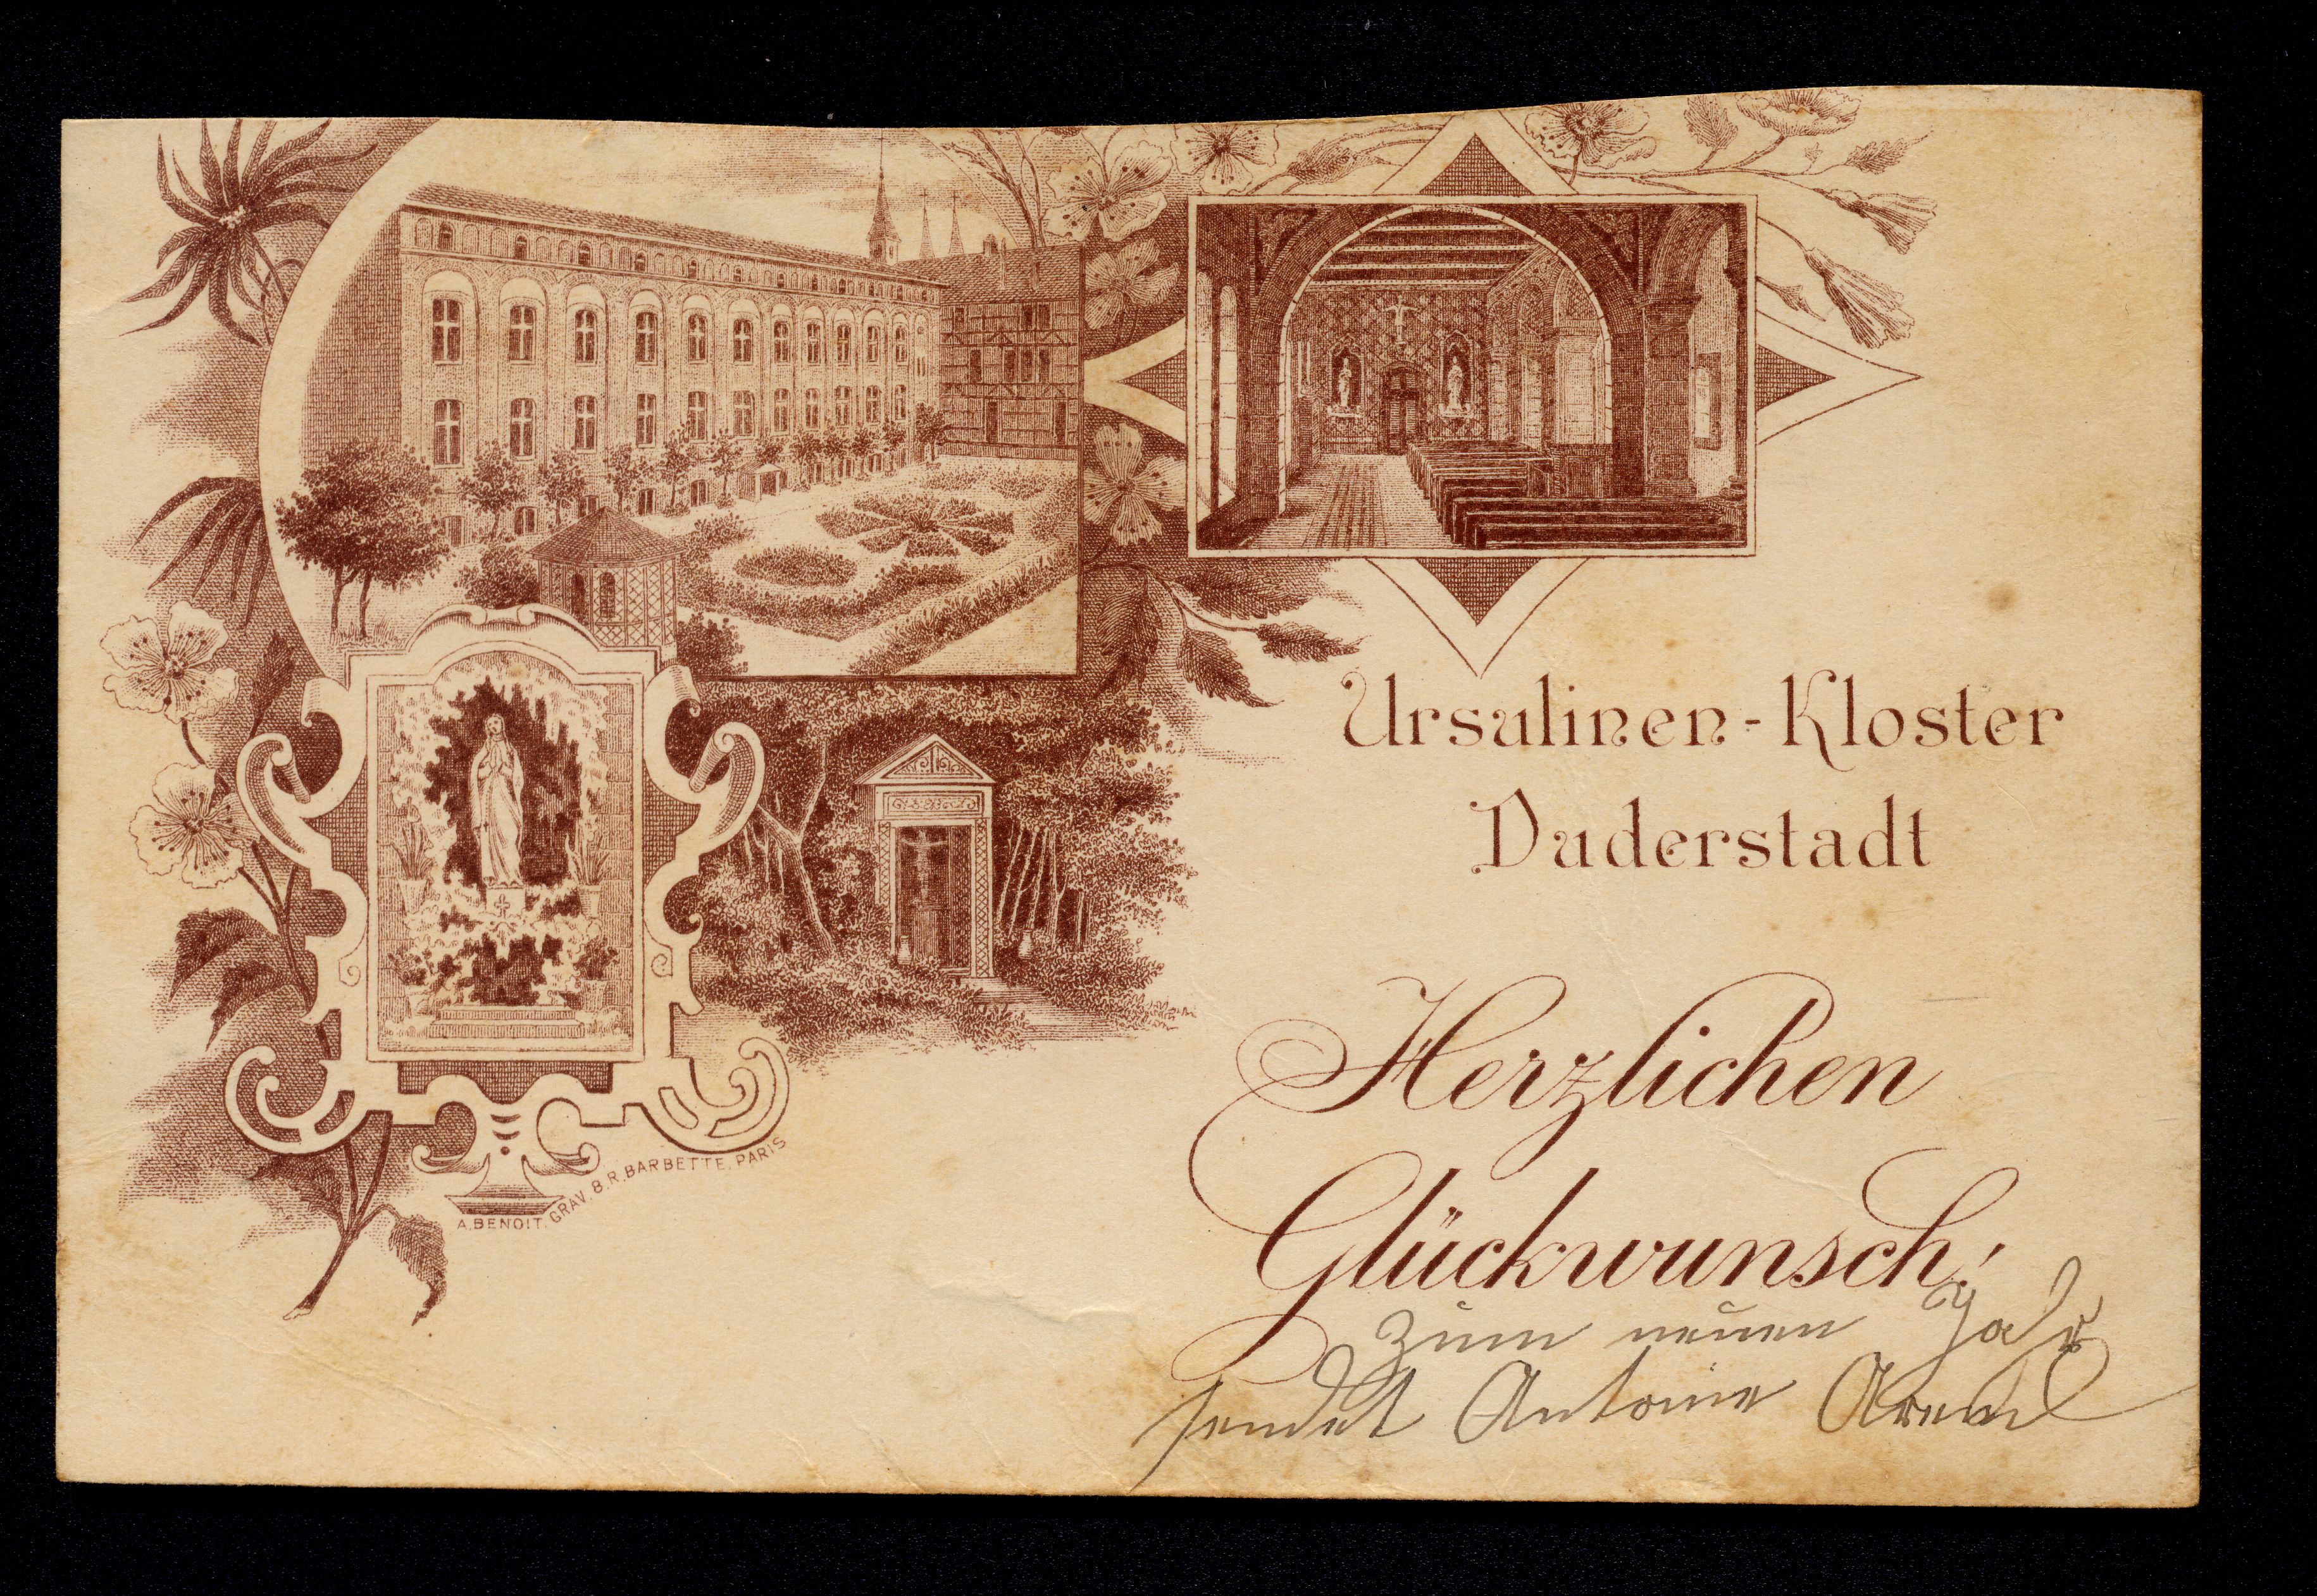 Ursulinen-Kloster
Duderstadt
Herzlichen
Glückwunsch!
zum neuen Jahr
sendet Antonie
A. BENOIT. GRAV. 8. R. BARBETTE. PARIS